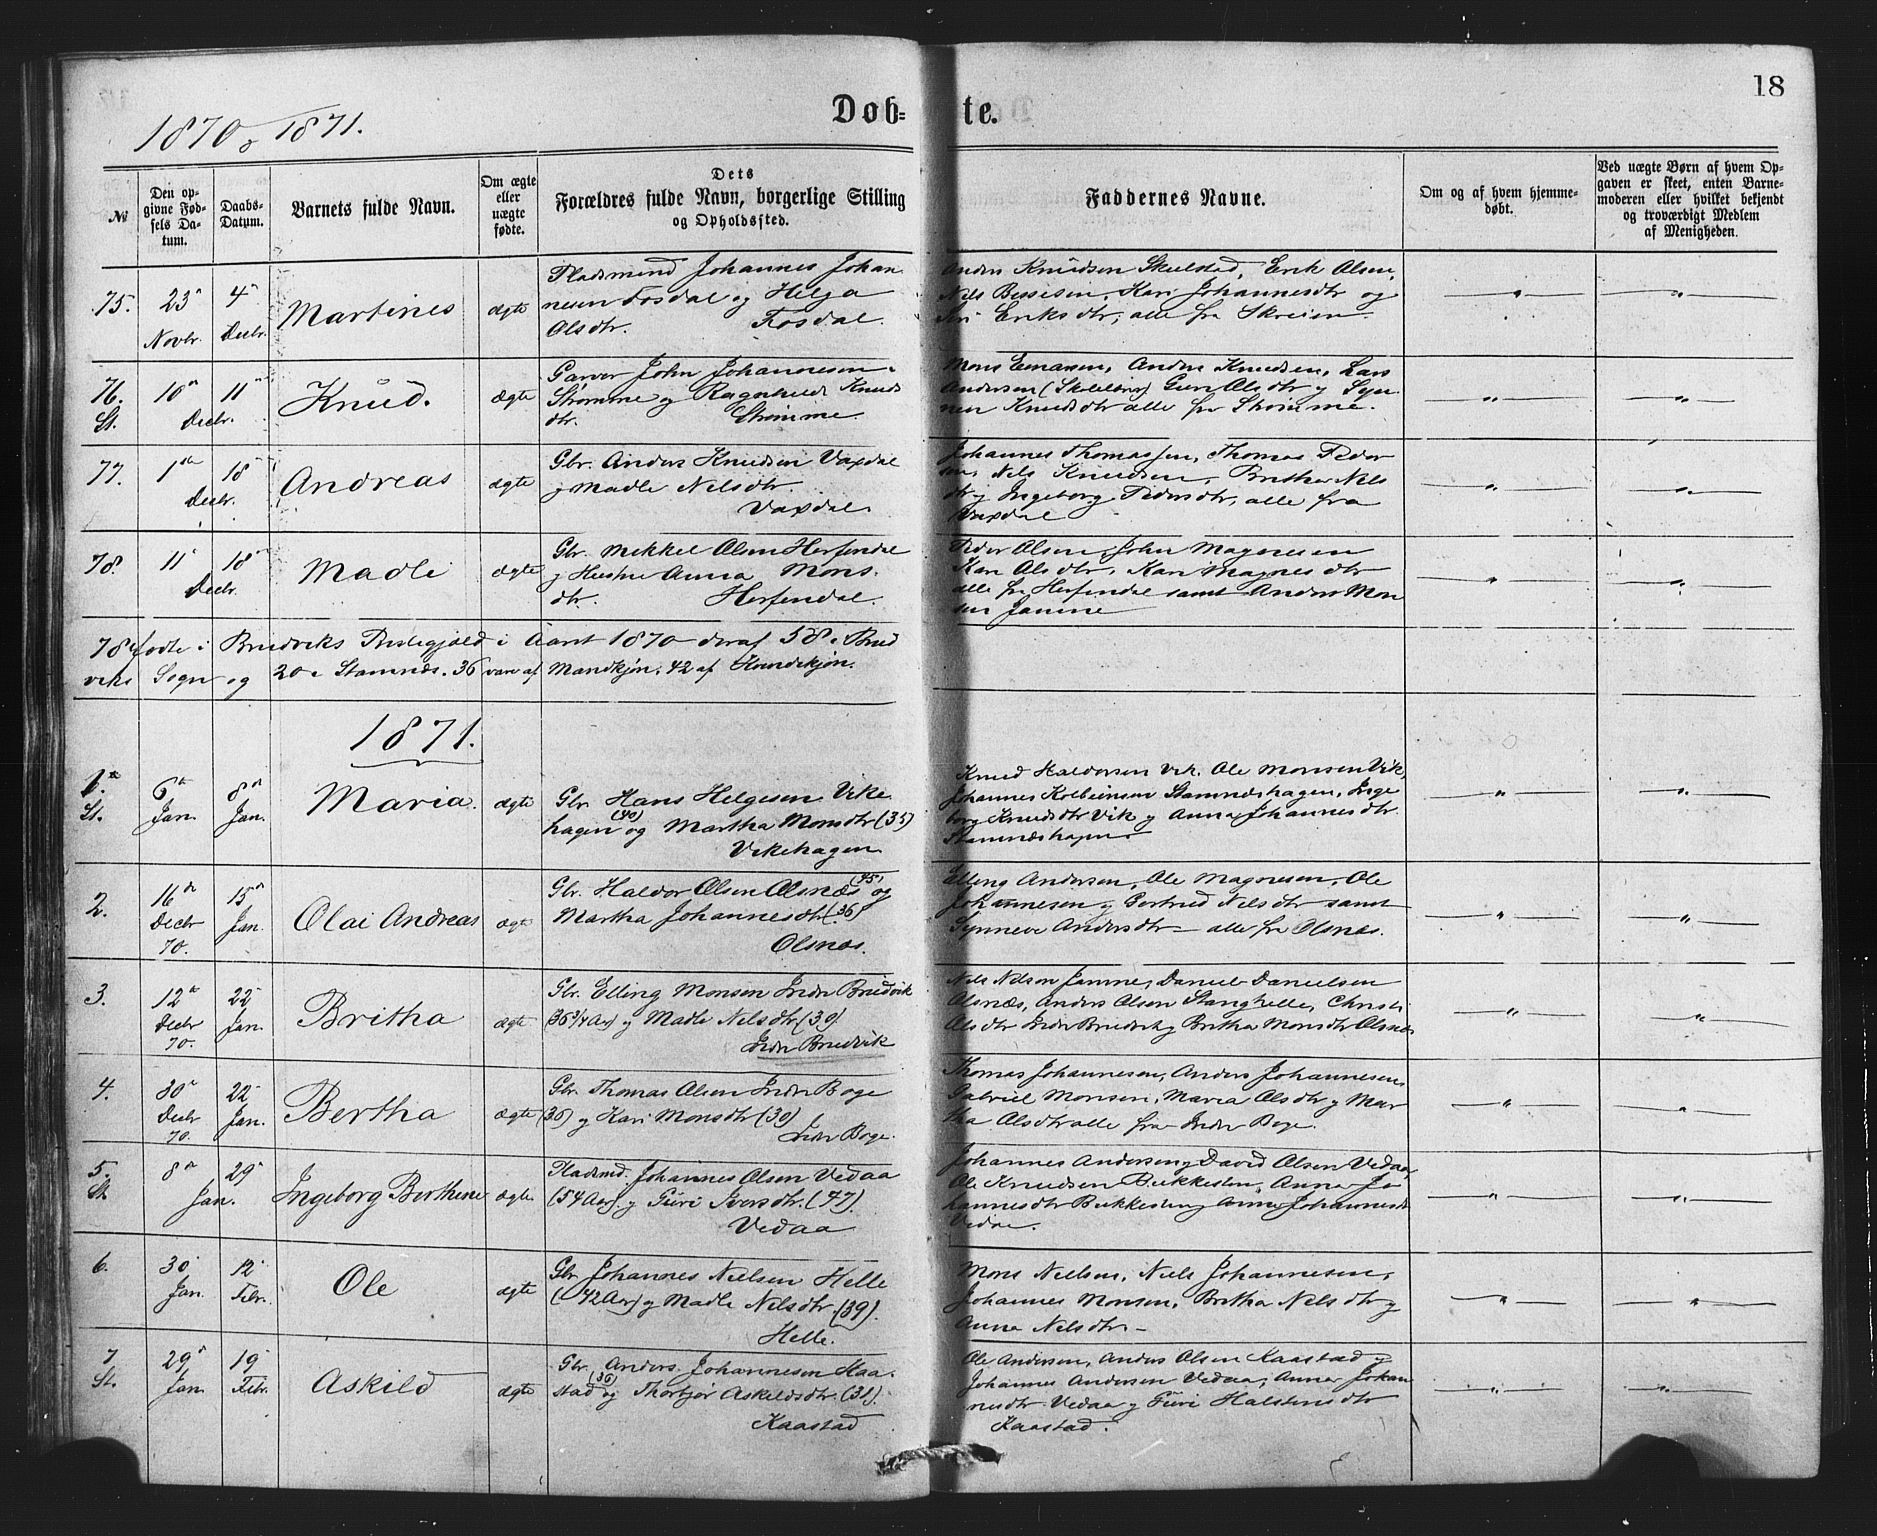 18
1870 & 1871.
Døb= te.
№
Den op-
givne Fød-
sels Da-
tum.
Daabs-
Datum.
Barnets fulde Navn.
Om ægte
eller
uægte
fødte.
Dets
Forældres fulde Navn, borgerlige Stilling
og Opholdssted.
Faddernes Navne.
Om og af hvem hjemme-
døbt.
Ved uægte Børn af hvem Op-
gaven er skeet, enten Barne-
moderen eller hvilket bekjendt
og troværdigt Medlem
af Menigheden.
75. 23 Novbr. 4 Decbr. Martines ægte
Pladsmend Johannes Johan
nesen Fosdal og Helga
Olsdtr. Fosdal.
Anders Knudsen Skulstad, Erik Olsen,
Nils Bessesen, Kari Johannesdtr og
Siri Eriksdtr, alle fra Skreien.
76. St. 10 11 Decbr. Knud. ægte
Garver John Johannesen
Strømme og Ragnhild Knuds
dtr. Strømme.
Mons Anders Knudsen, Lars
Andersen Guri Olsdtr og Syn
nev Knudsdtr alle fra Strømme.
77. 1 18 Decbr. Andreas ægte
Gbr. Anders Knudsen Vaxdal
og Madle Nilsdtr.
Vaxdal.
Johannes Thomassen, Thomas Peder
sen, Nils Knudsen, Britha Nils
dtr og Ingeborg Pedersdtr, alle fra
Vaxdal
78. 11 18 Decbr. Madli ægte
Gbr. Mikkel Olsen Herfendal
og Hustru Anna Mons
dtr. Herfendal.
Peder Olsen, John Magnesen
Kari Olsdtr, Kari Magnesdtr
alle fra Herfendal samt Anders Mon
sen Jamne
78 fødte i Bruviks Præstegjæld i Aaret 1870 deraf 58 i Brud
viks Sogn og 20 i Stamnæs. 36 vare af Mandkjøn. 42 af Kvindekjøn.
1871.
1. St. 6 Jan. 8 Jan. Maria. ægte
Gbr. Hans Helgesen Vike
hagen (40) og Martha Monsdtr (35)
Vikehagen
Knud Haldorsen Vik. Ole Monsen Vik,
Johannes Kolbeinsen Stamneshagen, Inge
borg Knudsdtr Vik og Anna Johannesdtr
Stamneshagen.
2. 16 Decbr 70. 15 Jan. Olai Andreas ægte
Gbr. Haldor Olsen Olsnæs (45) og
Martha Johannesdtr (36)
Olsnæs.
Elling Andersen, Ole Magnesen, Ole
Johannesen og Gertrud Nilsdtr samt
Synneve Andersdtr - alle fra Olsnæs.
3. 12 Decbr 70. 22 Jan. Britha ægte
Gbr. Elling Monsen Indre Bruvik
(36 3/4 Aar) og Madle Nilsdtr (39)
Indre Bruvik
Nils Nilsen Jamne, Daniel Danielsen
Olsnæs, Anders Olsen Stanghelle, Christi
Olsdtr Indre Bruvik og Britha Monsdtr Olsnæs
4. 30 Decbr 70. 22 Jan. Bertha ægte
Gbr. Thomas Olsen Indre Boge
(36) og Kari Monsdtr (30)
Indre Boge.
Thomas Johannesen, Anders Johannesen
Gabriel Monsen, Maria Olsdtr og Mar
tha Olsdtr alle fra Indre Boge.
5. St 8 29 Jan. Ingeborg Berthine ægte
Pladsmd. Johannes Olsen Vedaa
(54 Aar) og Guri Iversdtr. (47)
Vedaa
Johannes Andersen og David Olsen Vedaa,
Ole Knudsen Bekkesten, Anna Jo
hannesdtr Bekkesten og Anna Johannesdtr
Vedaa.
6. 30 Jan. 12 Febr. Ole ægte
Gbr. Johannes Nielsen Helle
(42 Aar) og Madle Nilsdtr (39).
Helle.
Mons Nielsen, Niels Johannesen,
Johannes Monsen, Britha Nilsdtr og
Anna Nilsdtr.
7 St. 29 Jan. 19 Febr. Askild ægte
Gbr. Anders Johannesen Kaa
stad (36) og Thorbjør Askildsdtr. (31).
Kaastad
Ole Andersen, Anders Olsen Kaastad og
Johannes Andersen Vedaa, Anna Johan
nesdtr Vedaa og Guri Halstensdtr
Kaastad.